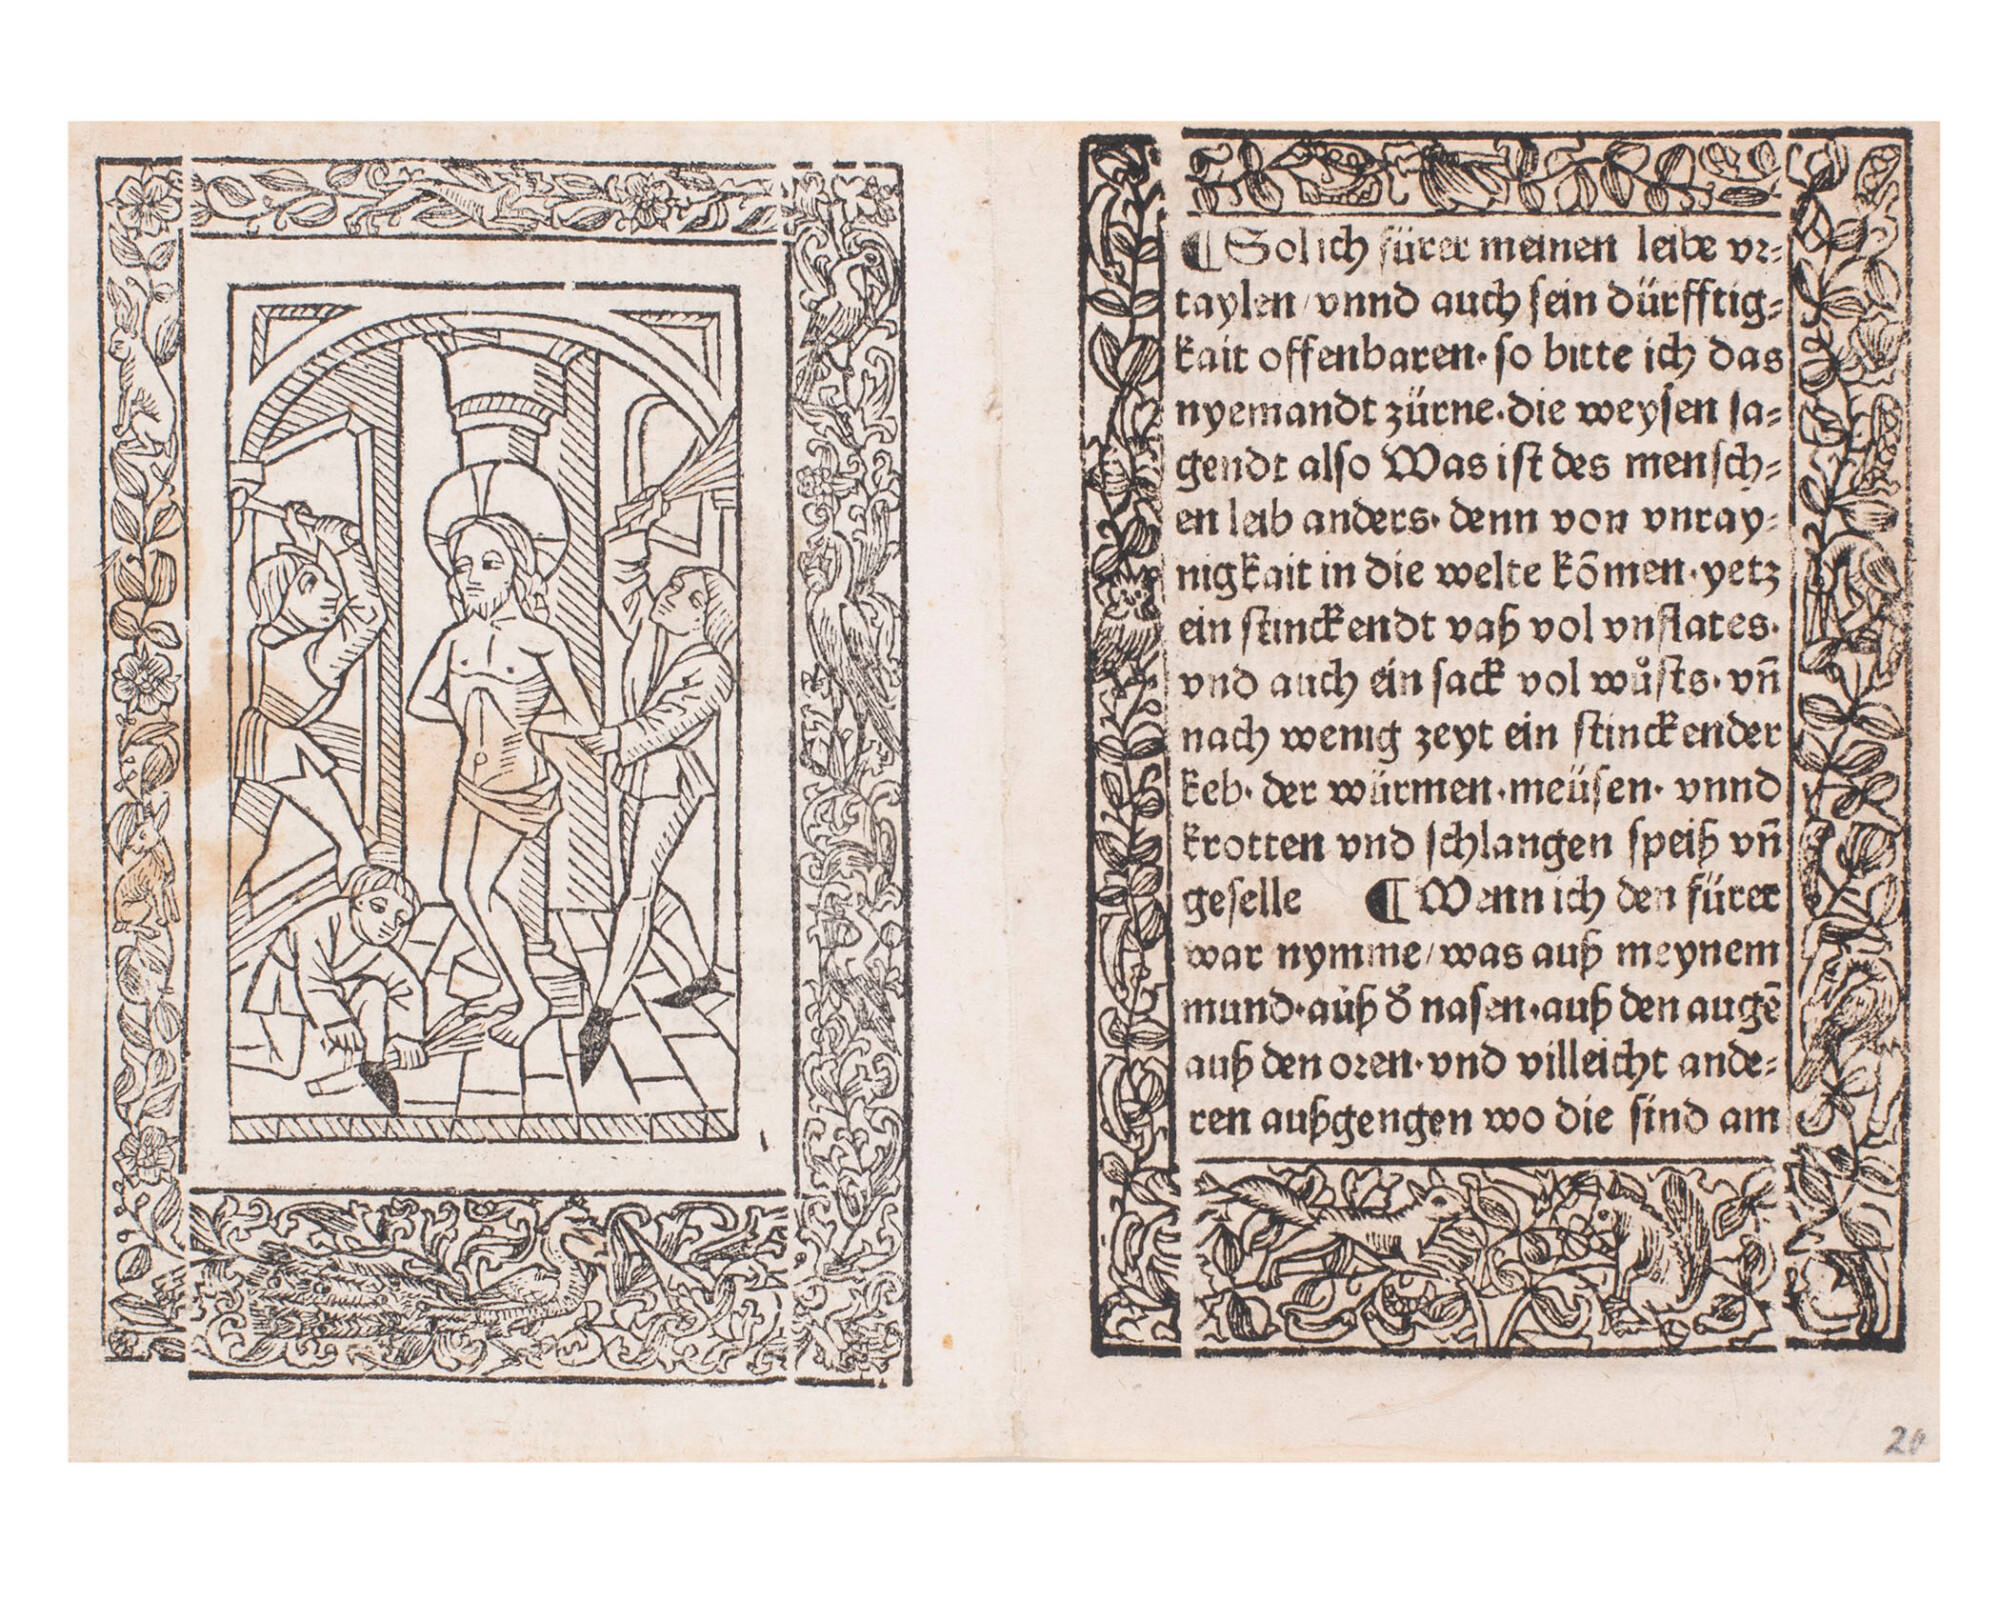 ¶ Sol ich fürer meinen leibe vr⸗
taylen / vnnd auch sein dürfftig⸗
kait offenbaren· so bitte ich das
nyemandt zürne· die weysen sa⸗
gendt also Was ist des mensch⸗
en leib anders· denn von vnray⸗
nigkait in die welte kōmen· yetz
ein stinckendt vaß vol vnflates·
vnd auch ein sack vol wůsts· vn̄
nach wenig zeyt ein stinckender
keb· der würmen· meüsen· vnnd
krotten vnd schlangen speiß vn̄
geselle ¶ Wenn ich den fürer
war nymme / was auß meynem
mund· auß d̕ nasen· auß den augē
auß den oren· vnd villeicht ande⸗
ren außgengen wo die sind am